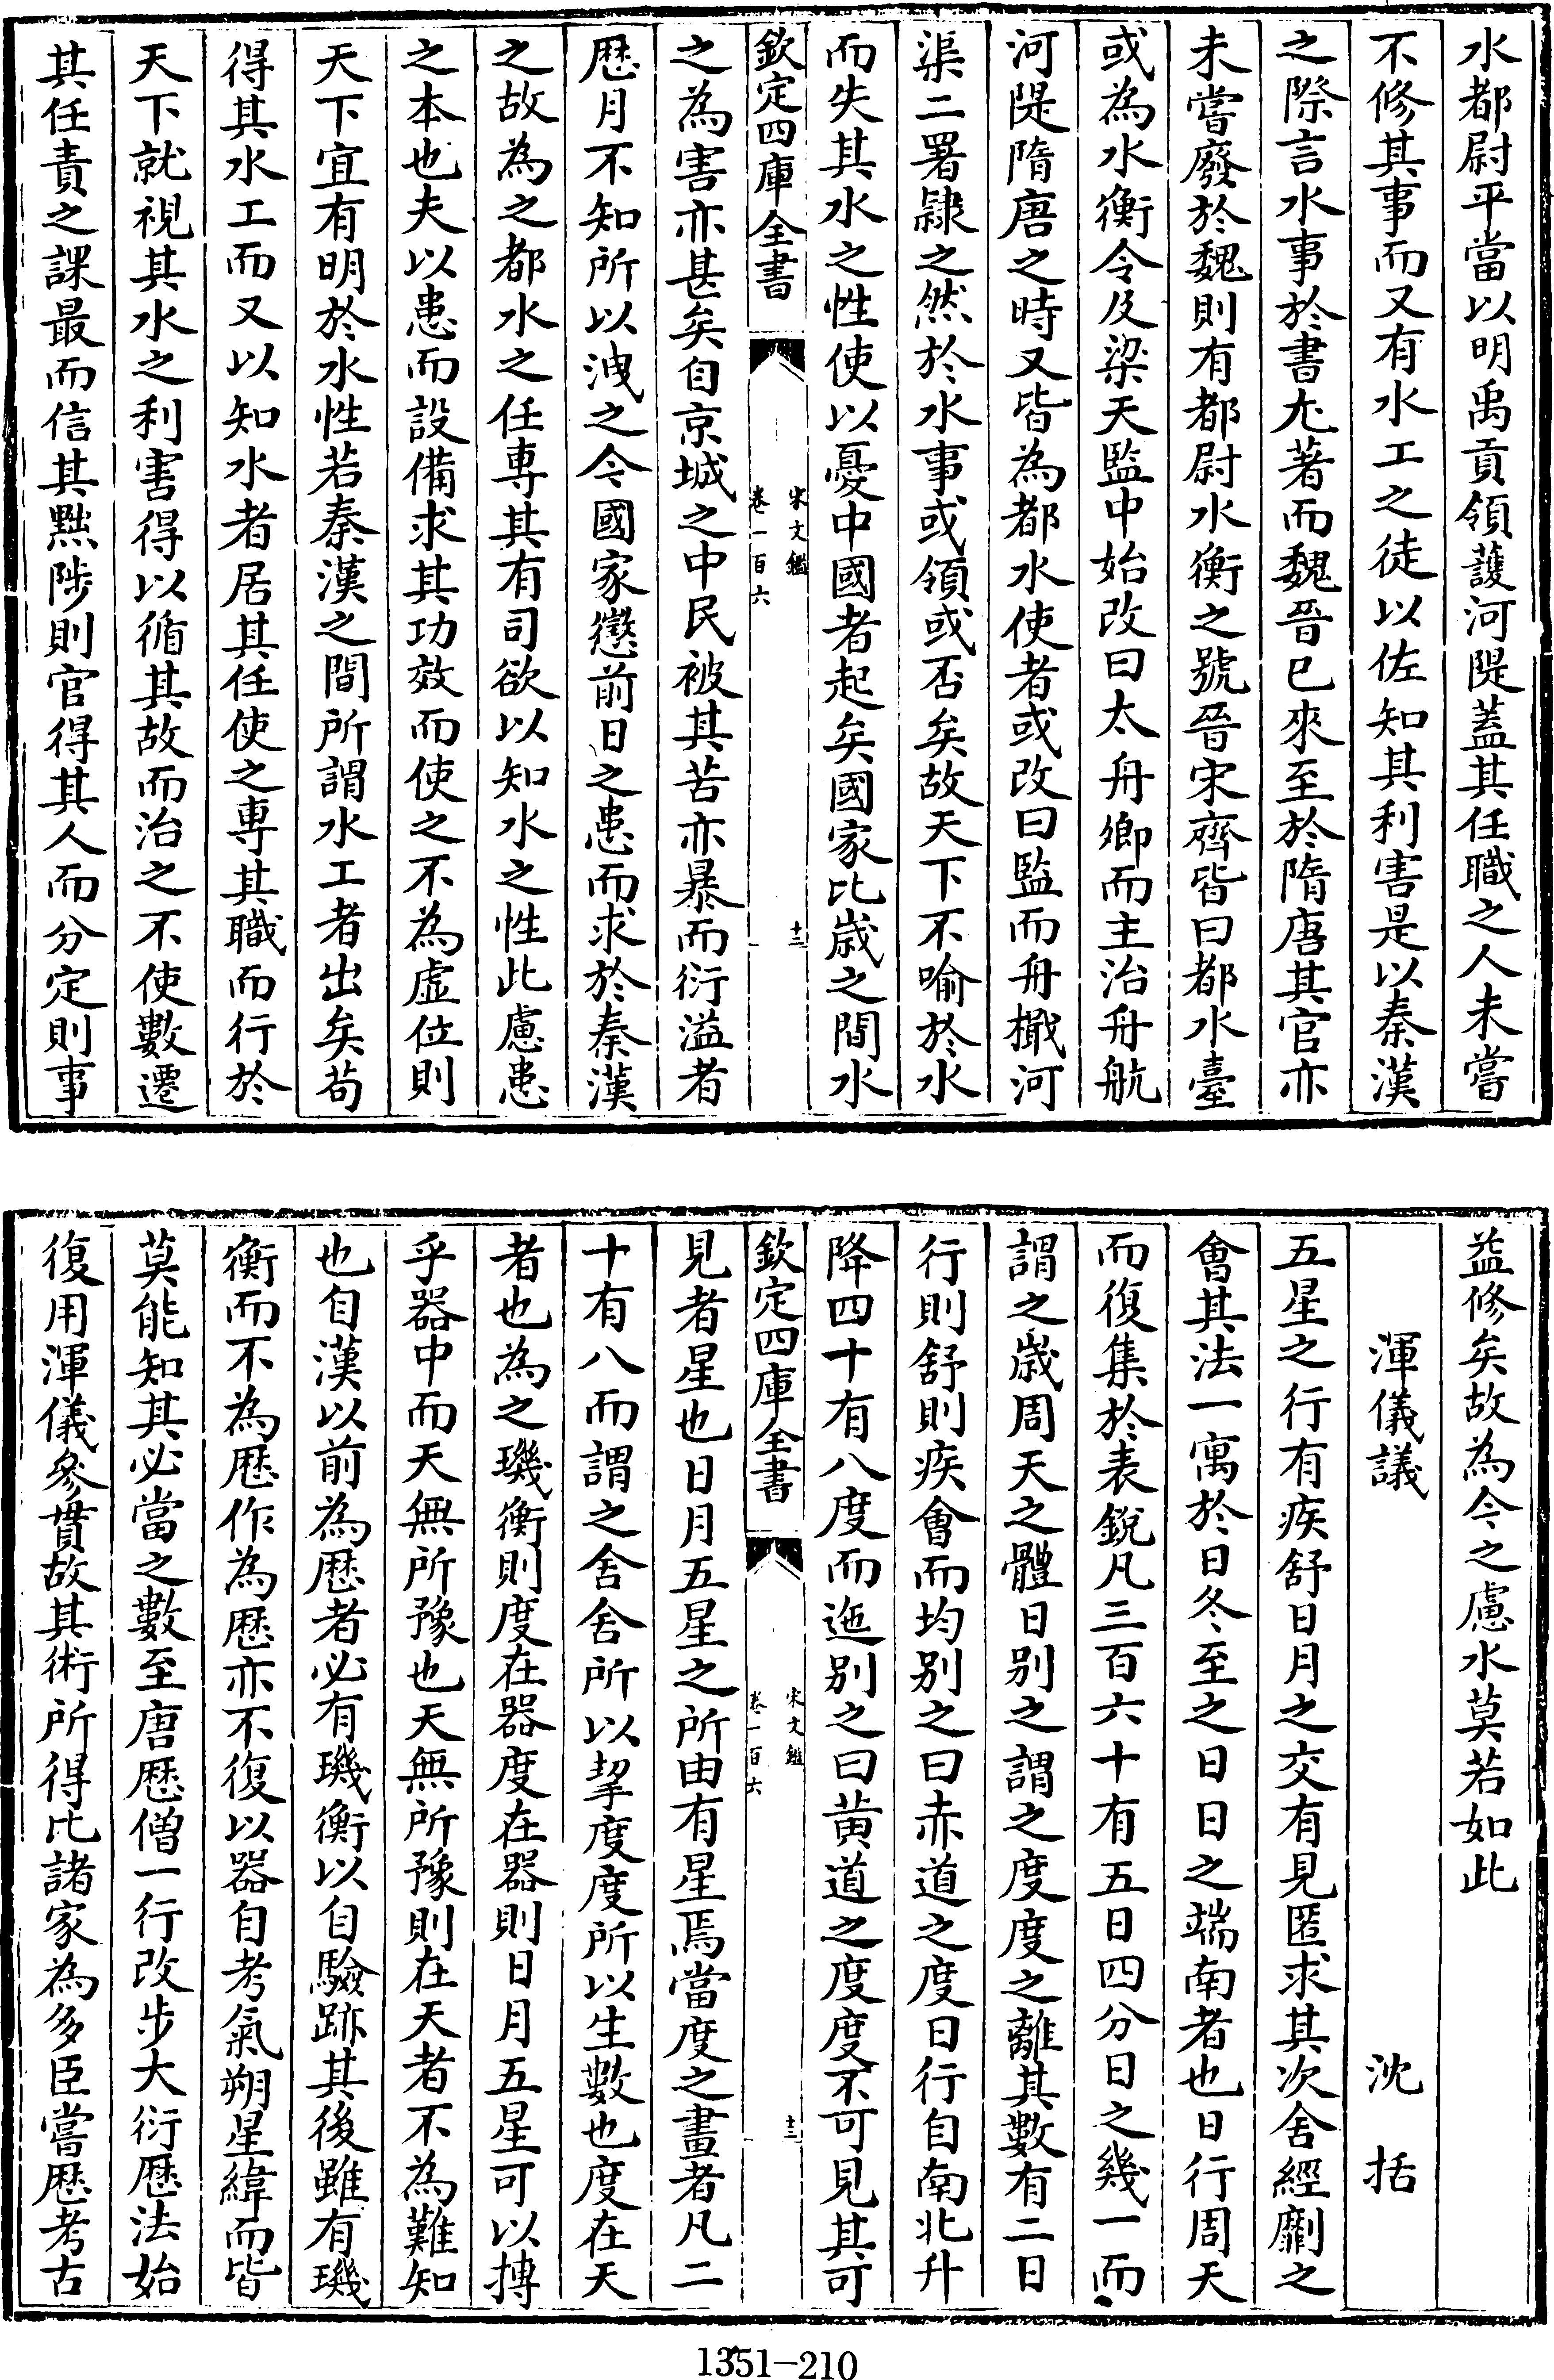 水都尉平當以明禹貢領護河隄蓋其任職之人未嘗
不修其事而又有水工之徒以佐知其利害是以秦漢
之際言水事於書尤著而魏晉已來至於隋唐其官亦
未嘗廢於魏則有都尉水衡之號晉宋齊皆曰都水臺
或為水衡令及梁天監中始改曰太舟卿而主治舟航
河隄隋唐之時又皆為都水使者或改曰監而舟檝河
渠二署隸之然於水事或領或否矣故天下不喻於水
而失其水之性使以憂中國者起矣國家比歲之間水
欽定四庫全書
宋文鑑
卷一百六
十二
之為害亦甚矣自京城之中民被其苦亦暴而衍溢者
歷月不知所以洩之今國家懲前日之患而求於秦漢
之故為之都水之任專其有司欲以知水之性此慮患
之本也夫以患而設備求其功效而使之不為虛位則
天下宜有明於水性若秦漢之間所謂水工者出矣苟
得其水工而又以知水者居其任使之專其職而行於
天下就視其水之利害得以循其故而治之不使數遷
其任責之課最而信其黜陟則官得其人而分定則事
益修矣故為今之慮水莫若如此
渾儀議 沈括
五星之行有疾舒日月之交有見匿求其次舍經劘之
會其法一寓於日冬至之日日之端南者也日行周天
而復集於表銳凡三百六十有五日四分日之幾一而
謂之歲周天之體日别之謂之度度之離其數有二日
行則舒則疾會而均别之曰赤道之度日行自南北升
降四十有八度而迤别之曰黄道之度度不可見其可
欽定四庫全書
宋文鑑
卷一百六
十三
見者星也日月五星之所由有星焉當度之畫者凡二
十有八而謂之舍舍所以挈度度所以生數也度在天
者也為之璣衡則度在器度在器則日月五星可以摶
乎器中而天無所豫也天無所豫則在天者不為難知
也自漢以前為歷者必有璣衡以自驗跡其後雖有璣
衡而不為歷作為歷亦不復以器自考氣朔星緯而皆
莫能知其必當之數至唐歷僧一行改步大衍歷法始
復用渾儀參貫故其術所得比諸家為多臣嘗歷考古
1351-210